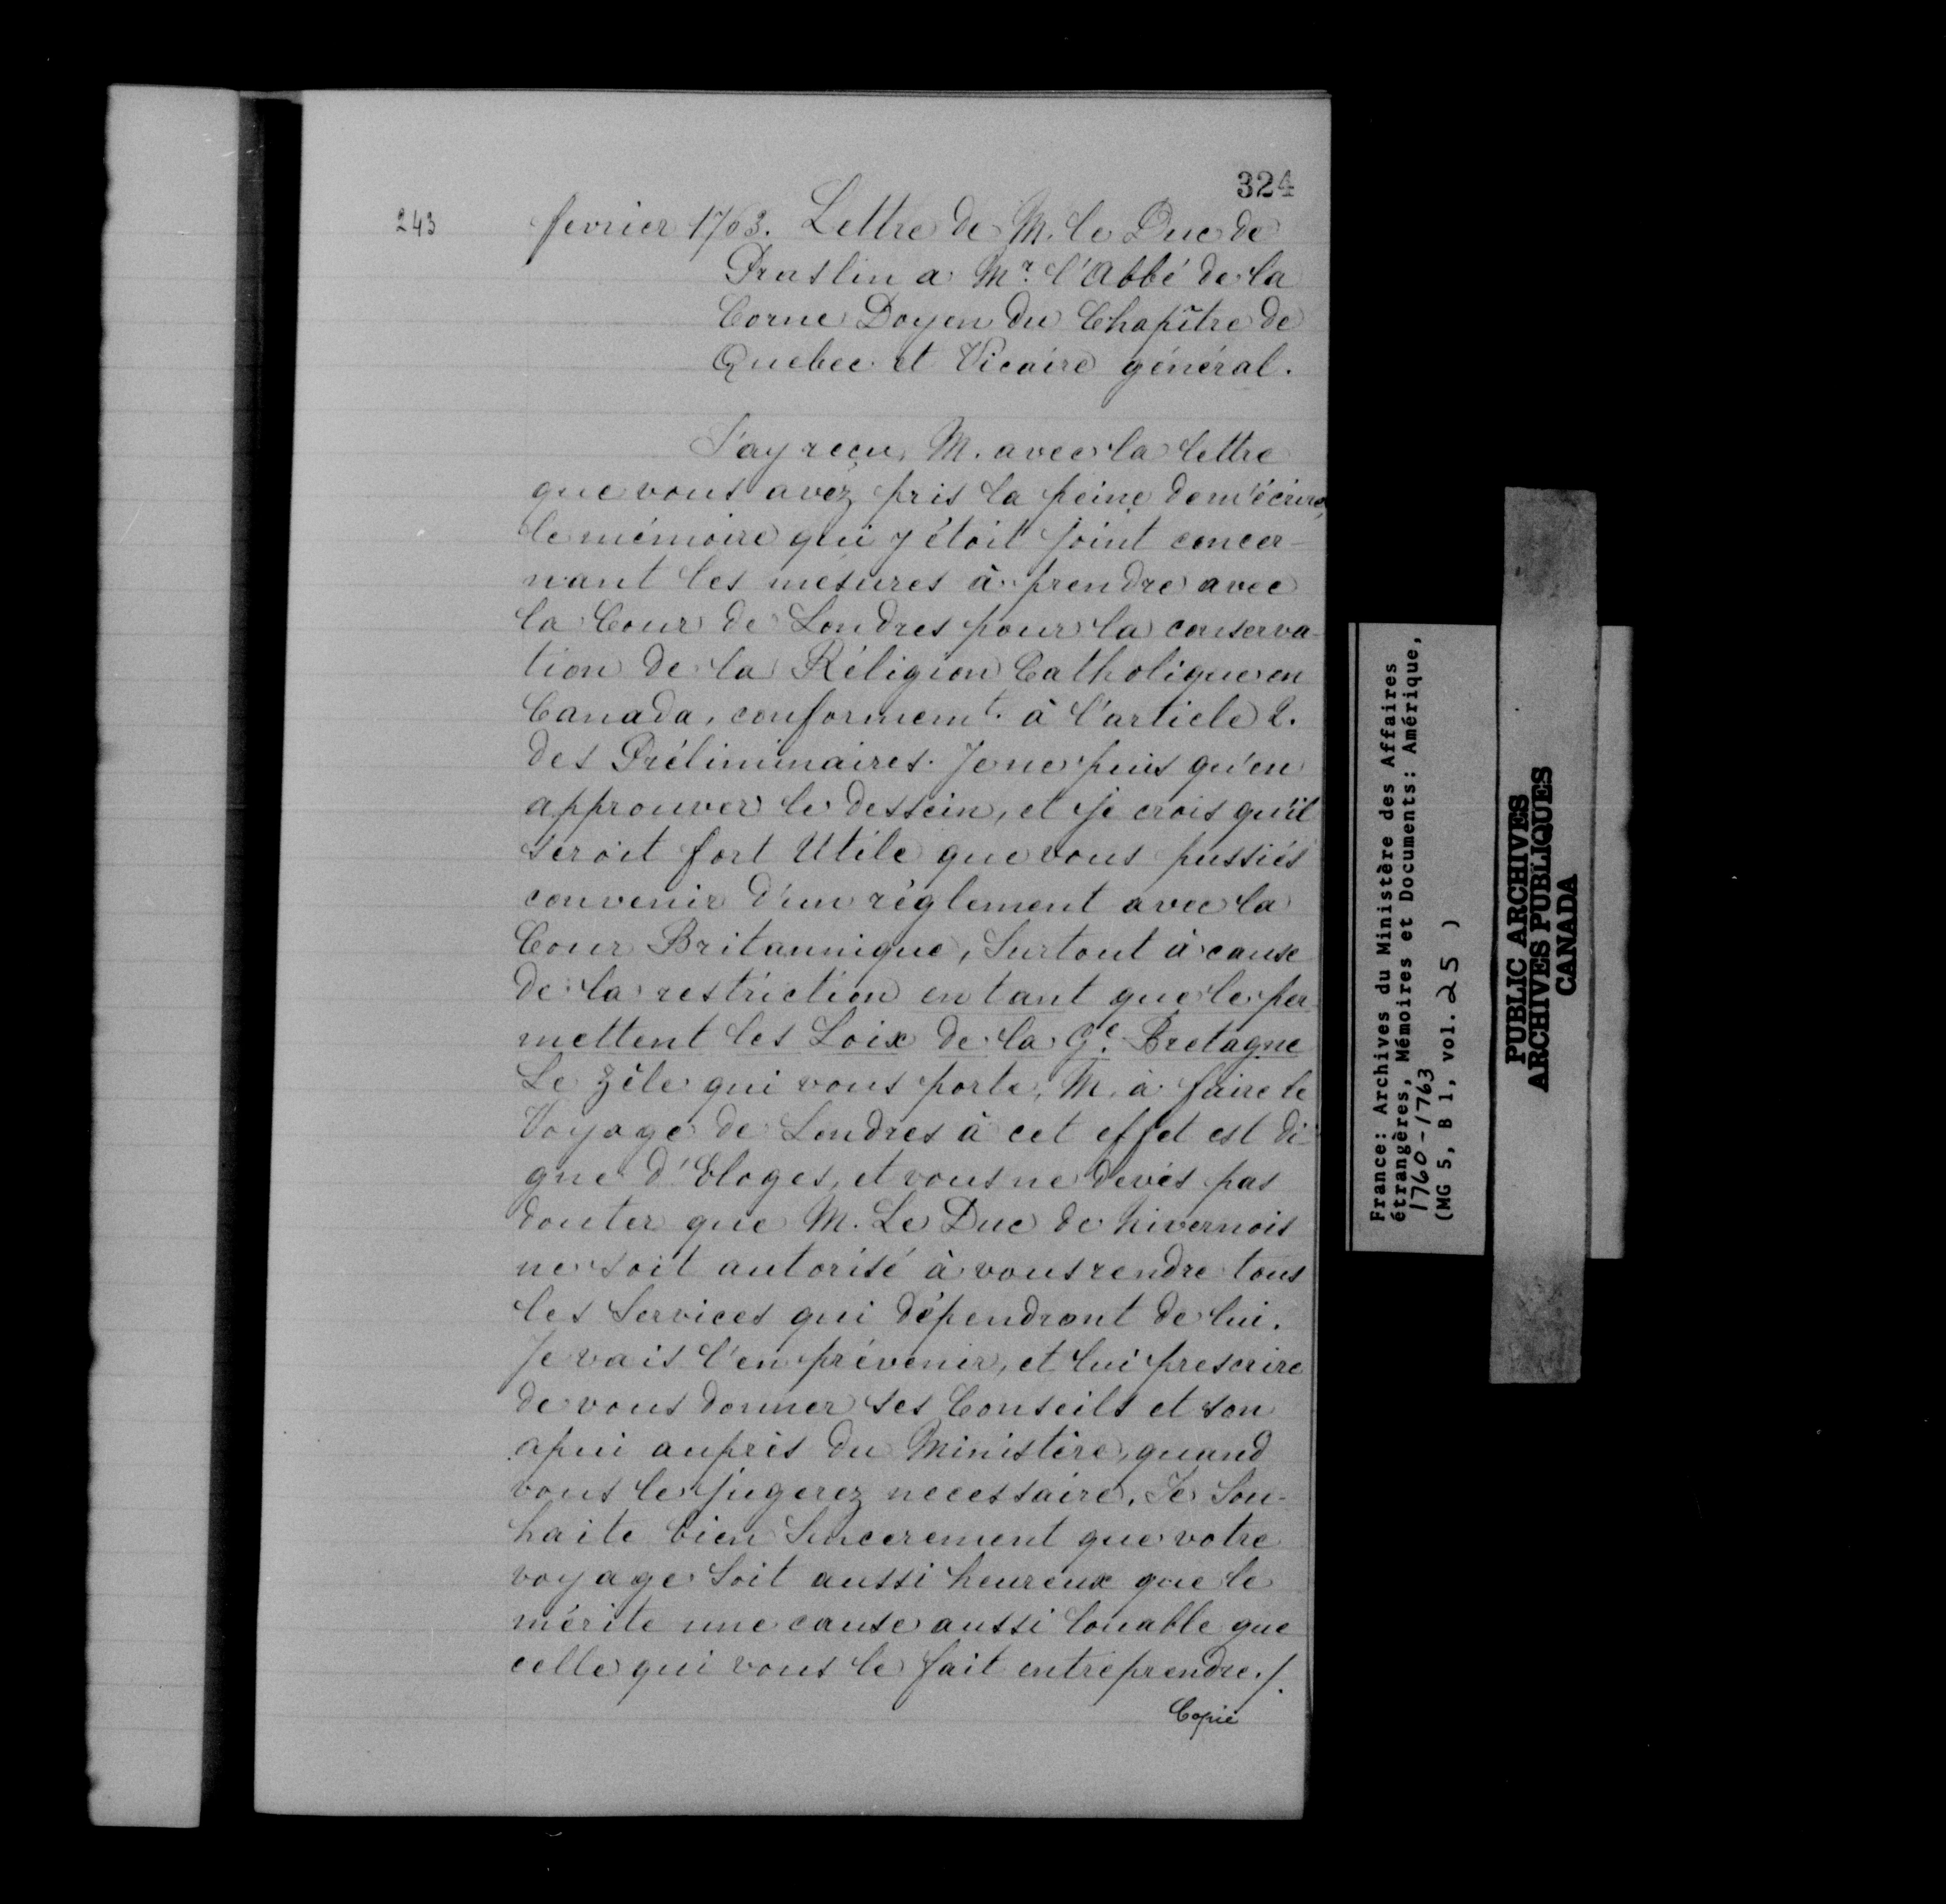 324
243
fevrier 1763. Lettre de M. le Duc de
Praslin a Mr. l'Abbé de la
Corne Doyen du Chapître de
Quebec et Vicaire général.
J'ay reçu, M. avec la lettre
que vous avéz pris la peine de m'écrire,
le mémoire qui y étoit joint concer-
nant les mésures à prendre avec
la Cour de Londres pour la conserva-
tion de la Réligion Catholique en
Canada, conformemt. à l'article 2.
des Préliminaires. Je ne puis qu'en
approuver le dessein, et je crois qu'il
seroit fort Utile que vous pussiés
convenir d'un réglement avec la
Cour Britannique, Surtout à cause
de la restriction en tant que le per-
mettent les Loix de la Ge. Bretagne
Le Zèle qui vous porte, M. à faire le
Voyage de Londres à cet effet est di-
gne d'Eloges, et vous ne devés pas
douter que M. Le Duc de Nivernois
ne soit autorisé à vous rendre tous
les Services qui dépendront de lui.
Je vais l'en prévenir, et lui prescrire
de vous donner ses Conseils et son
apui auprès du Ministère, quand
vous le jugerez necessaire. Je Sou-
haite bien Sincerement que votre
voyage Soit aussi heureux que le
mérite une cause aussi louable que
celle qui vous le fait entreprendre./.
Copie
France: Archives du Ministère des Affaires
étrangères, Mémoires et Documents: Amérique,
1760-1763
(MG 5, B 1, vol. 25 )
PUBLIC ARCHIVES
ARCHIVES PUBLIQUES
CANADA